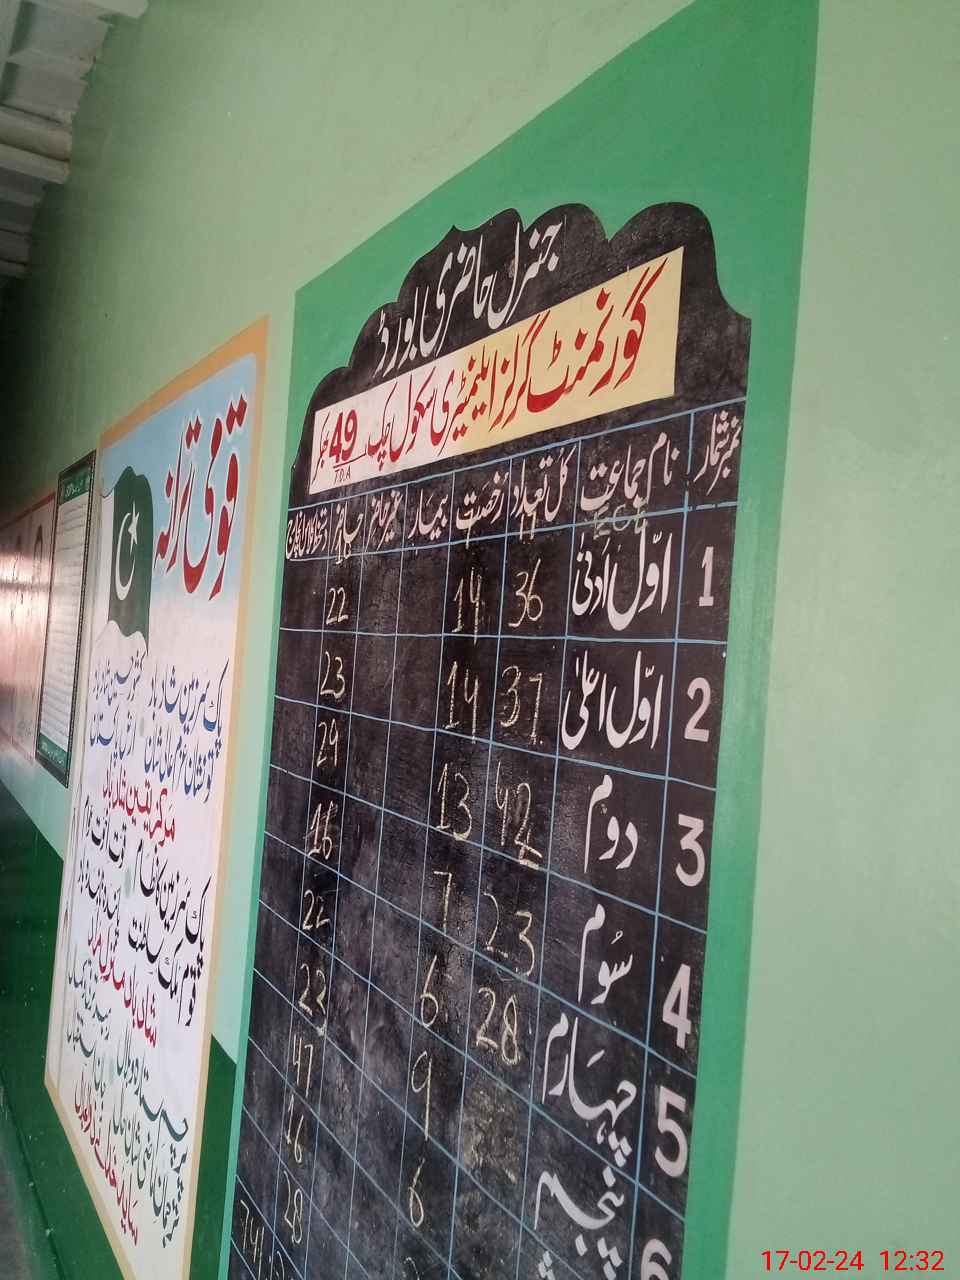 جنرل حاضری بورڈ
گورنمنٹ گرلز ایلیمنٹری سکول چک 49
T.D.A
نمبر شمار نام جماعت کل تعداد رخصت بیمار غیر حاضر حاضر
1 اوّل ادنیٰ 36 14 22
2 اوّل اعلیٰ 37 14 23
3 دوم 42 13 29
4 سُوم 23 7 16
5 چہارم 28 6 22
6 پنجم 9 23
6 47
16
28
قومی ترانہ
پاک سرزمین شاد باد کشور حسین شاد باد
تو نشان عزم عالی شان ارض پاکستان
مرکز یقین شاد باد
پاک سرزمین کا نظام قوت اخوت عوام
قوم ملک سلطنت پائندہ تابندہ باد
شاد باد منزل مراد
پرچم ستارہ و ہلال
ترجمان ماضی شان حال جان استقبال
سایہ خدائے ذوالجلال
17-02-24 12:32